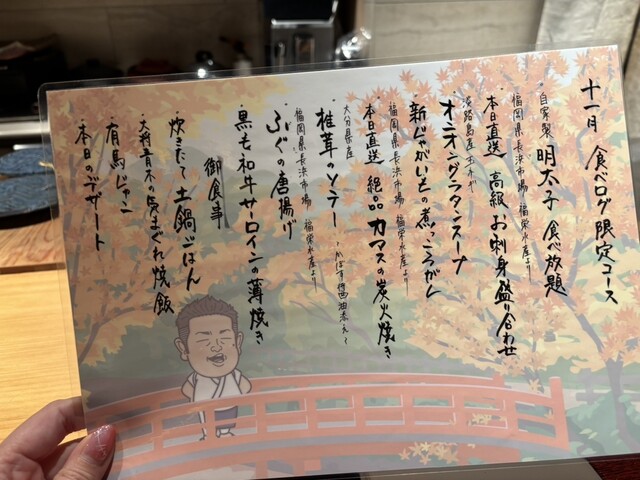 十一月 食べログ限定コース
自家製 明太子 食べ放題
福岡県長浜市場 福栄水産より
・本日直送 高級 お刺身盛り合わせ
淡路島産玉ねぎ
・オニオングラタンスープ
・新じゃがいもの煮っころがし
福岡県長浜市場 福栄水産より
・本日直送 絶品 カマスの炭火焼き
大分県産
・椎茸のソテー 〜かぼす醤油添え〜
福岡県長浜市場 福栄水産より
・ふぐの唐揚げ
・黒毛和牛サーロインの薄焼き
御食事
・炊きたて土鍋ごはん
・大将青木の気まぐれ焼飯
・有馬じゃこ
・本日のデザート